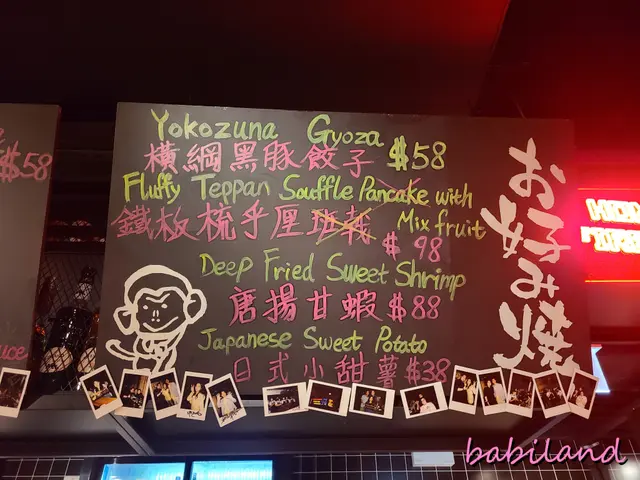 $58
Yokozuna Gyoza
横綱黑豚餃子 $58
Fluffy Teppan Souffle Pancake with
鐵板梳乎厘班戟 Mix fruit
$98
Deep Fried Sweet Shrimp
唐揚甘蝦 $88
Japanese Sweet Potato
日式小甜薯 $38
お好み焼
babiland